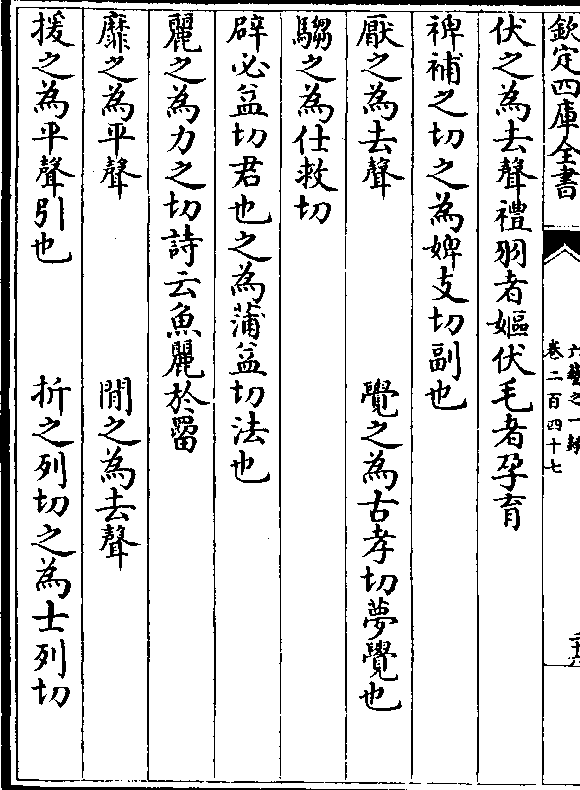 欽定四庫全書
六藝之一錄
卷二百四十七
伏之為去聲禮羽者嫗伏毛者孕育
裨補之切之為婢支切副也
厭之為去聲　覺之為古孝切夢覺也
騶之為仕救切
辟必益切君也之為蒲益切法也
麗之為力之切詩云魚麗於罶
靡之為平聲　閒之為去聲
援之為平聲引也　折之列切之為士列切